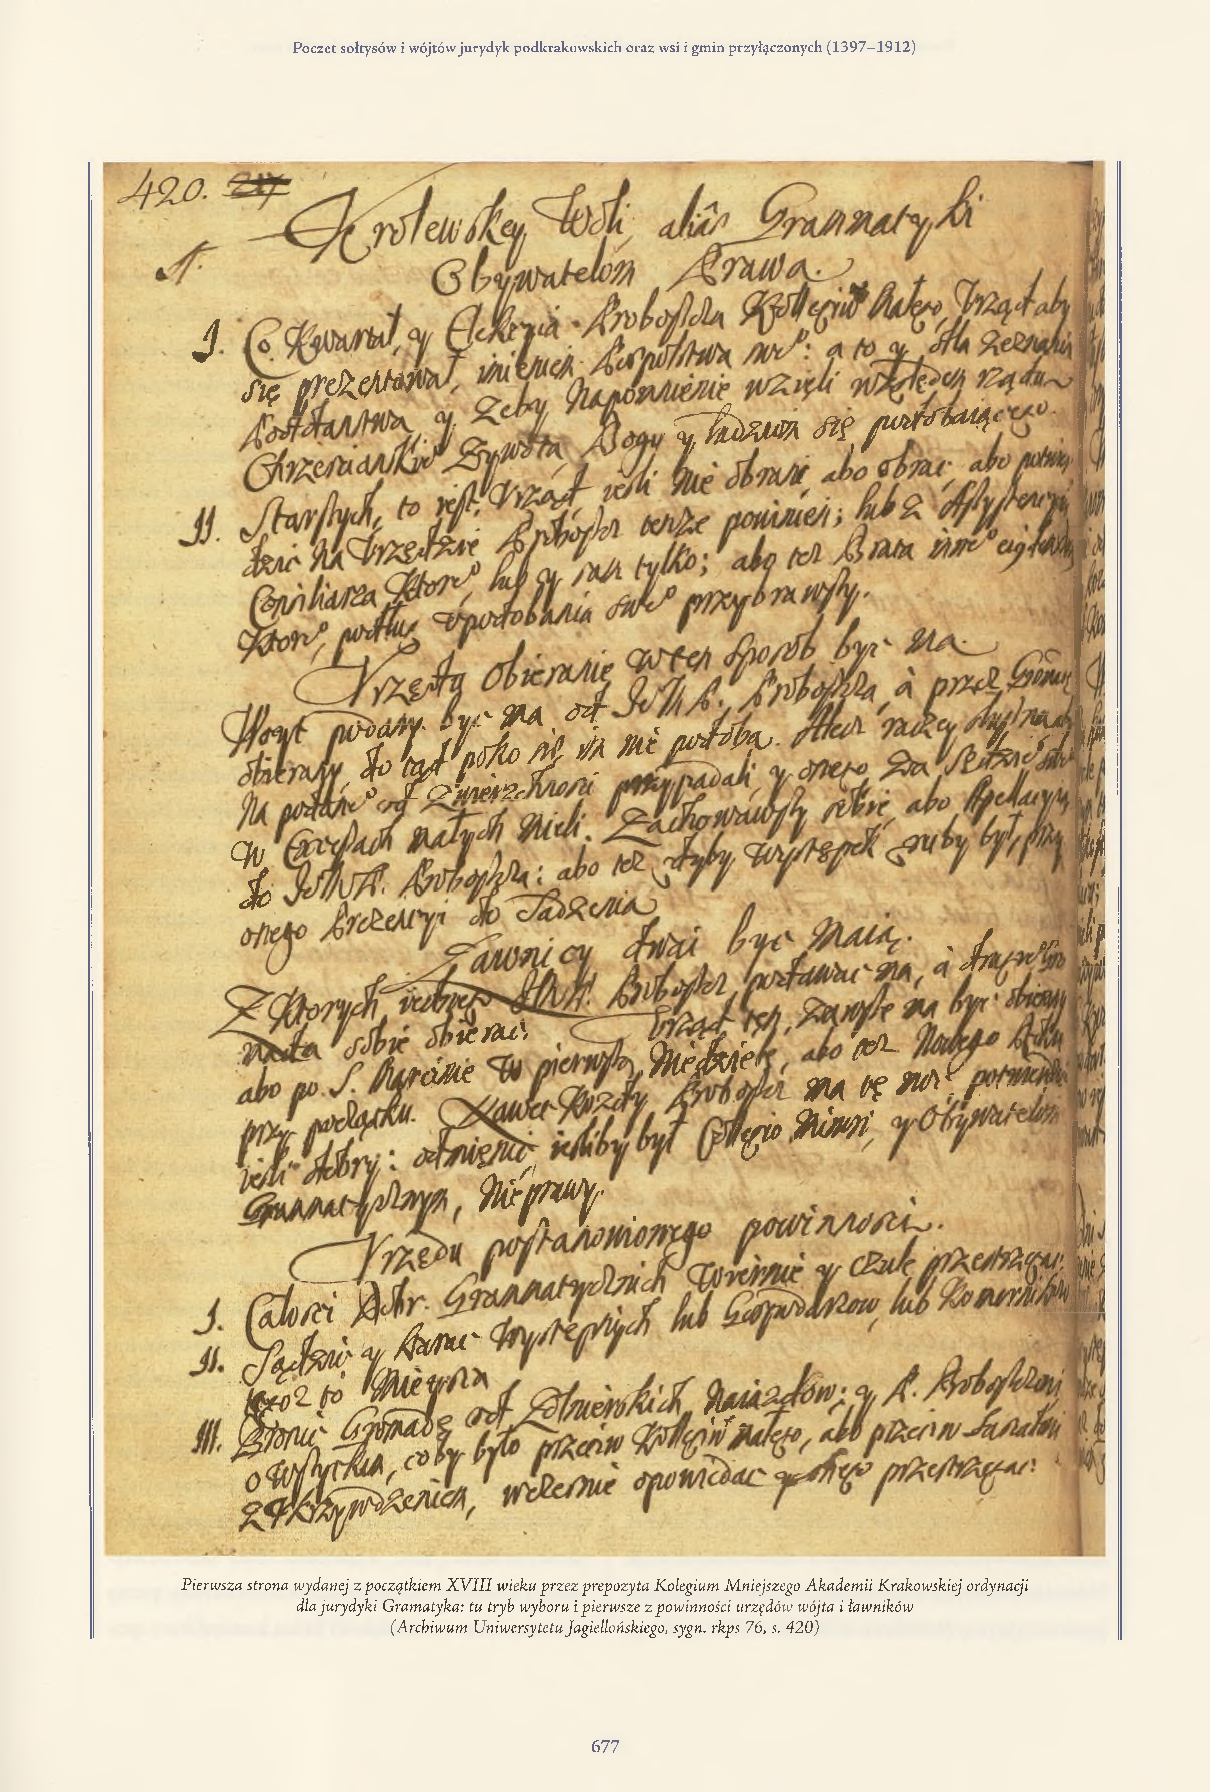 Poczet sołtysów i wójtów jurydyk podkrakowskich oraz wsi i gmin przyłączonych (1397–1912)
420.
Krolewskey Woli aliâs Grammatyki
Obywatelom Prawa.
I. Co Kwartał, y Elekcyia Proboszcza Kollegiu Małego, Vrząd aby
się prezentował, imieniem Pospolstwa : a to y dla zeznania
Poddaństwa y żeby Napomnienie wzięli względem rządu
Chrzescianskiº Zywota, Bogu y ludziom się podobaiącego.
II. Starszych, to iest, Vrząd, iesli nie obrani, abo obrac, abo
dzic na Vrzędzie Proboszcz tenże powinien; lub z Assystencyą
Consiliarza Ktoreº, lub y sam tylko; abo też Brata inneº
Ktoreº, podług Vpodobania sweº przybrawszy.
Vrzędu Obieranie w ten sposob byc ma
Woyt podany byc ma od Proboszcza, à przez
obierany do tąd poko się im nie podoba.
Na podanieº od Zwierzchnosci przypadali, y onego za
w Excessach małych mieli. Zachowawszy sobie, abo Apellacyą
do Proboszcza: abo też gdyby występek gruby był, przy
onego Prezencyi do Sadzenia
Ławnicy dwai byc Maią.
Z Ktorych iednego Proboszcz podawac ma, à drugiego
sobie obierac. Vrząd ten, zawsze ma byc obierany
abo po S. Marcinie w pierwszą Niedzielę, abo też Nowego Roku
przy początku. Nawet Kozdy Proboszcz ma tę moc potwierdzic
iesli dobry: odmienic, iesliby był Collegio Minori, y Obywatelom
Grammatycznym, Nieprawy.
Vrzędu postanowionego powinnosci.
I. Całosci Dobr. Grammatycznich wiernie y czule przestrzegac.
II. Sądzic y Karac Występnych lub Gospodarzow, lub Komornikow
ktoz to Miewa
III. Bronic Gromadę od Żołnierskich Naiazdow; y P. Proboszczowi
o wszytkim, coby było przeciw Kollegiu małego, abo przeciw
z Vkrzywdzeniem, wczesnie opowiedac y onego przestrzegac:
Pierwsza strona wydanej z początkiem XVIII wieku przez prepozyta Kolegium Mniejszego Akademii Krakowskiej ordynacji
dla jurydyki Gramatyka: tu tryb wyboru i pierwsze z powinności urzędów wójta i ławników
(Archiwum Uniwersytetu Jagiellońskiego, sygn. rkps 76, s. 420)
677